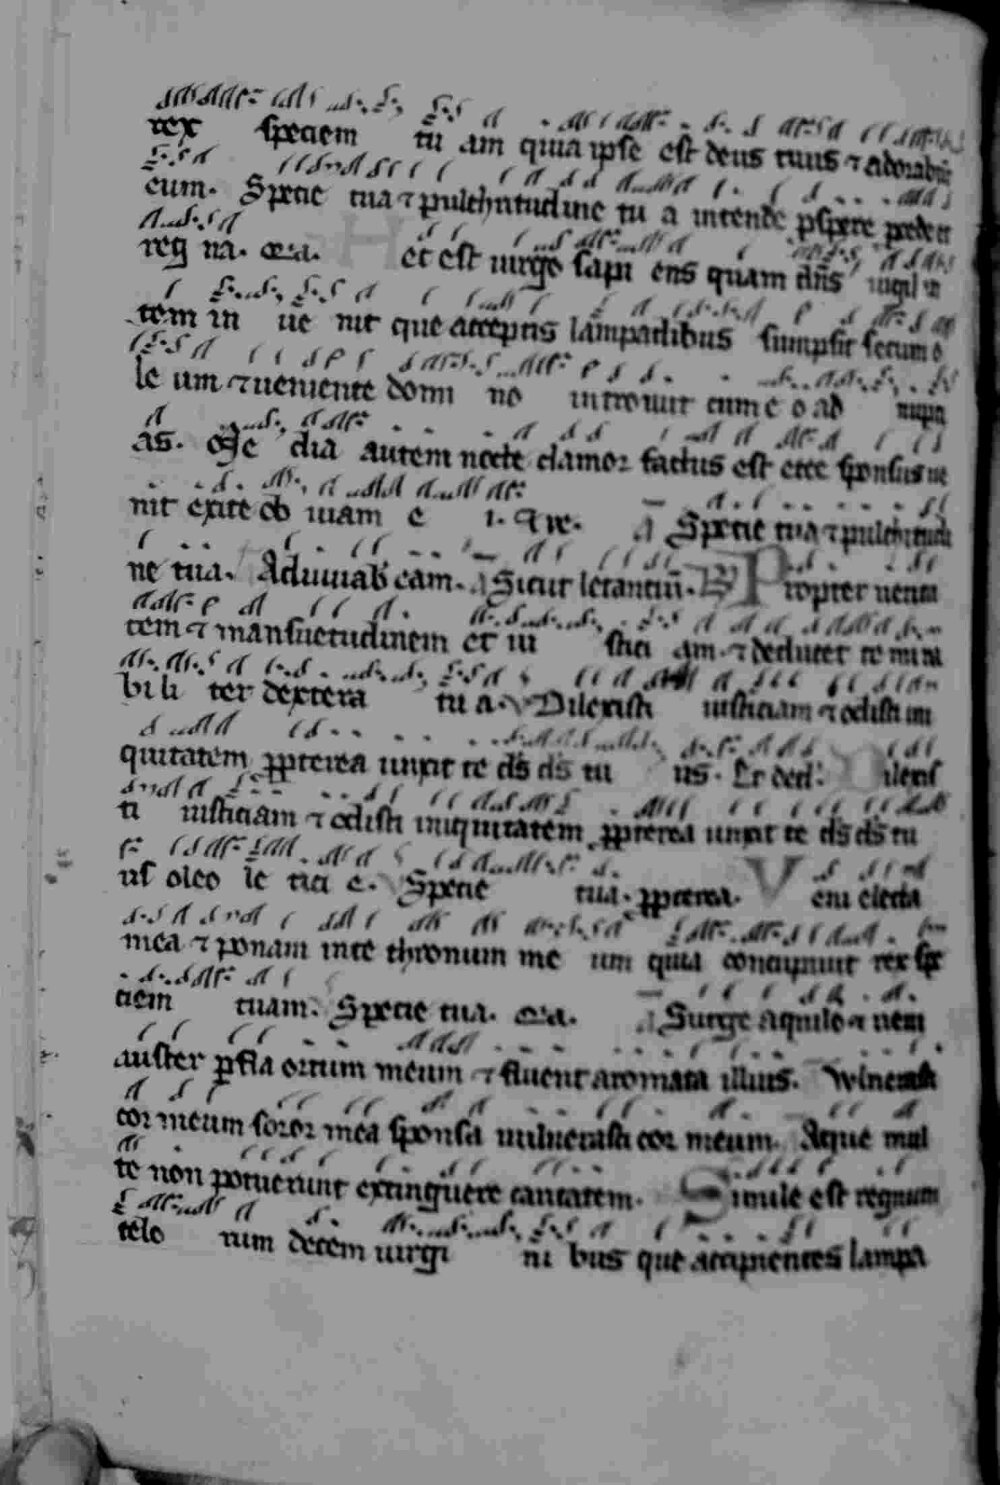 rex speciem tu am quia ipse est deus tuus ⁊ adorabūt
eum. Specie tua ⁊ pulchritudine tu a intende ꝓspere procede et
reg na. Hec est uirgo sapi ens quam dn̄s uigil an
tem in ue nit que acceptis lampadibus sumpsit secum o
le um ⁊ ueniente domi no introiuit cum e o ad nupti
as. Me dia autem nocte clamor factus est ecce sponsus ue
nit exite ob uiam e i. a Specie tua ⁊ pulchritudi
ne tua. Adiuuab eam. a Sicut letantiū. Propter uerita
tem ⁊ mansuetudinem et iu stici am ⁊ deducet te mira
bi li ter dextera tu a. V Dilexisti iusticiam ⁊ odisti ini
quitatem ꝓpterea unxit te ds̄ ds̄ tu us. Et ded. Dilexis
ti iusticiam ⁊ odisti iniquitatem ꝓpterea unxit te ds̄ ds̄ tu
us oleo le tici e. V Specie tua. ꝓpterea. Veni electa
mea ⁊ ponam in te thronum me um quia concupiuit rex spe
ciem tuam. Specie tua. a Surge aquilo ⁊ ueni
auster ꝑfla ortum meum ⁊ fluent aromata illius. Wlnerasti
cor meum soror mea sponsa uulnerasti cor meum. Aque mul
te non potuerunt extinguere caritatem. Simile est regnum
celo rum decem uirgi ni bus que accipientes lampa